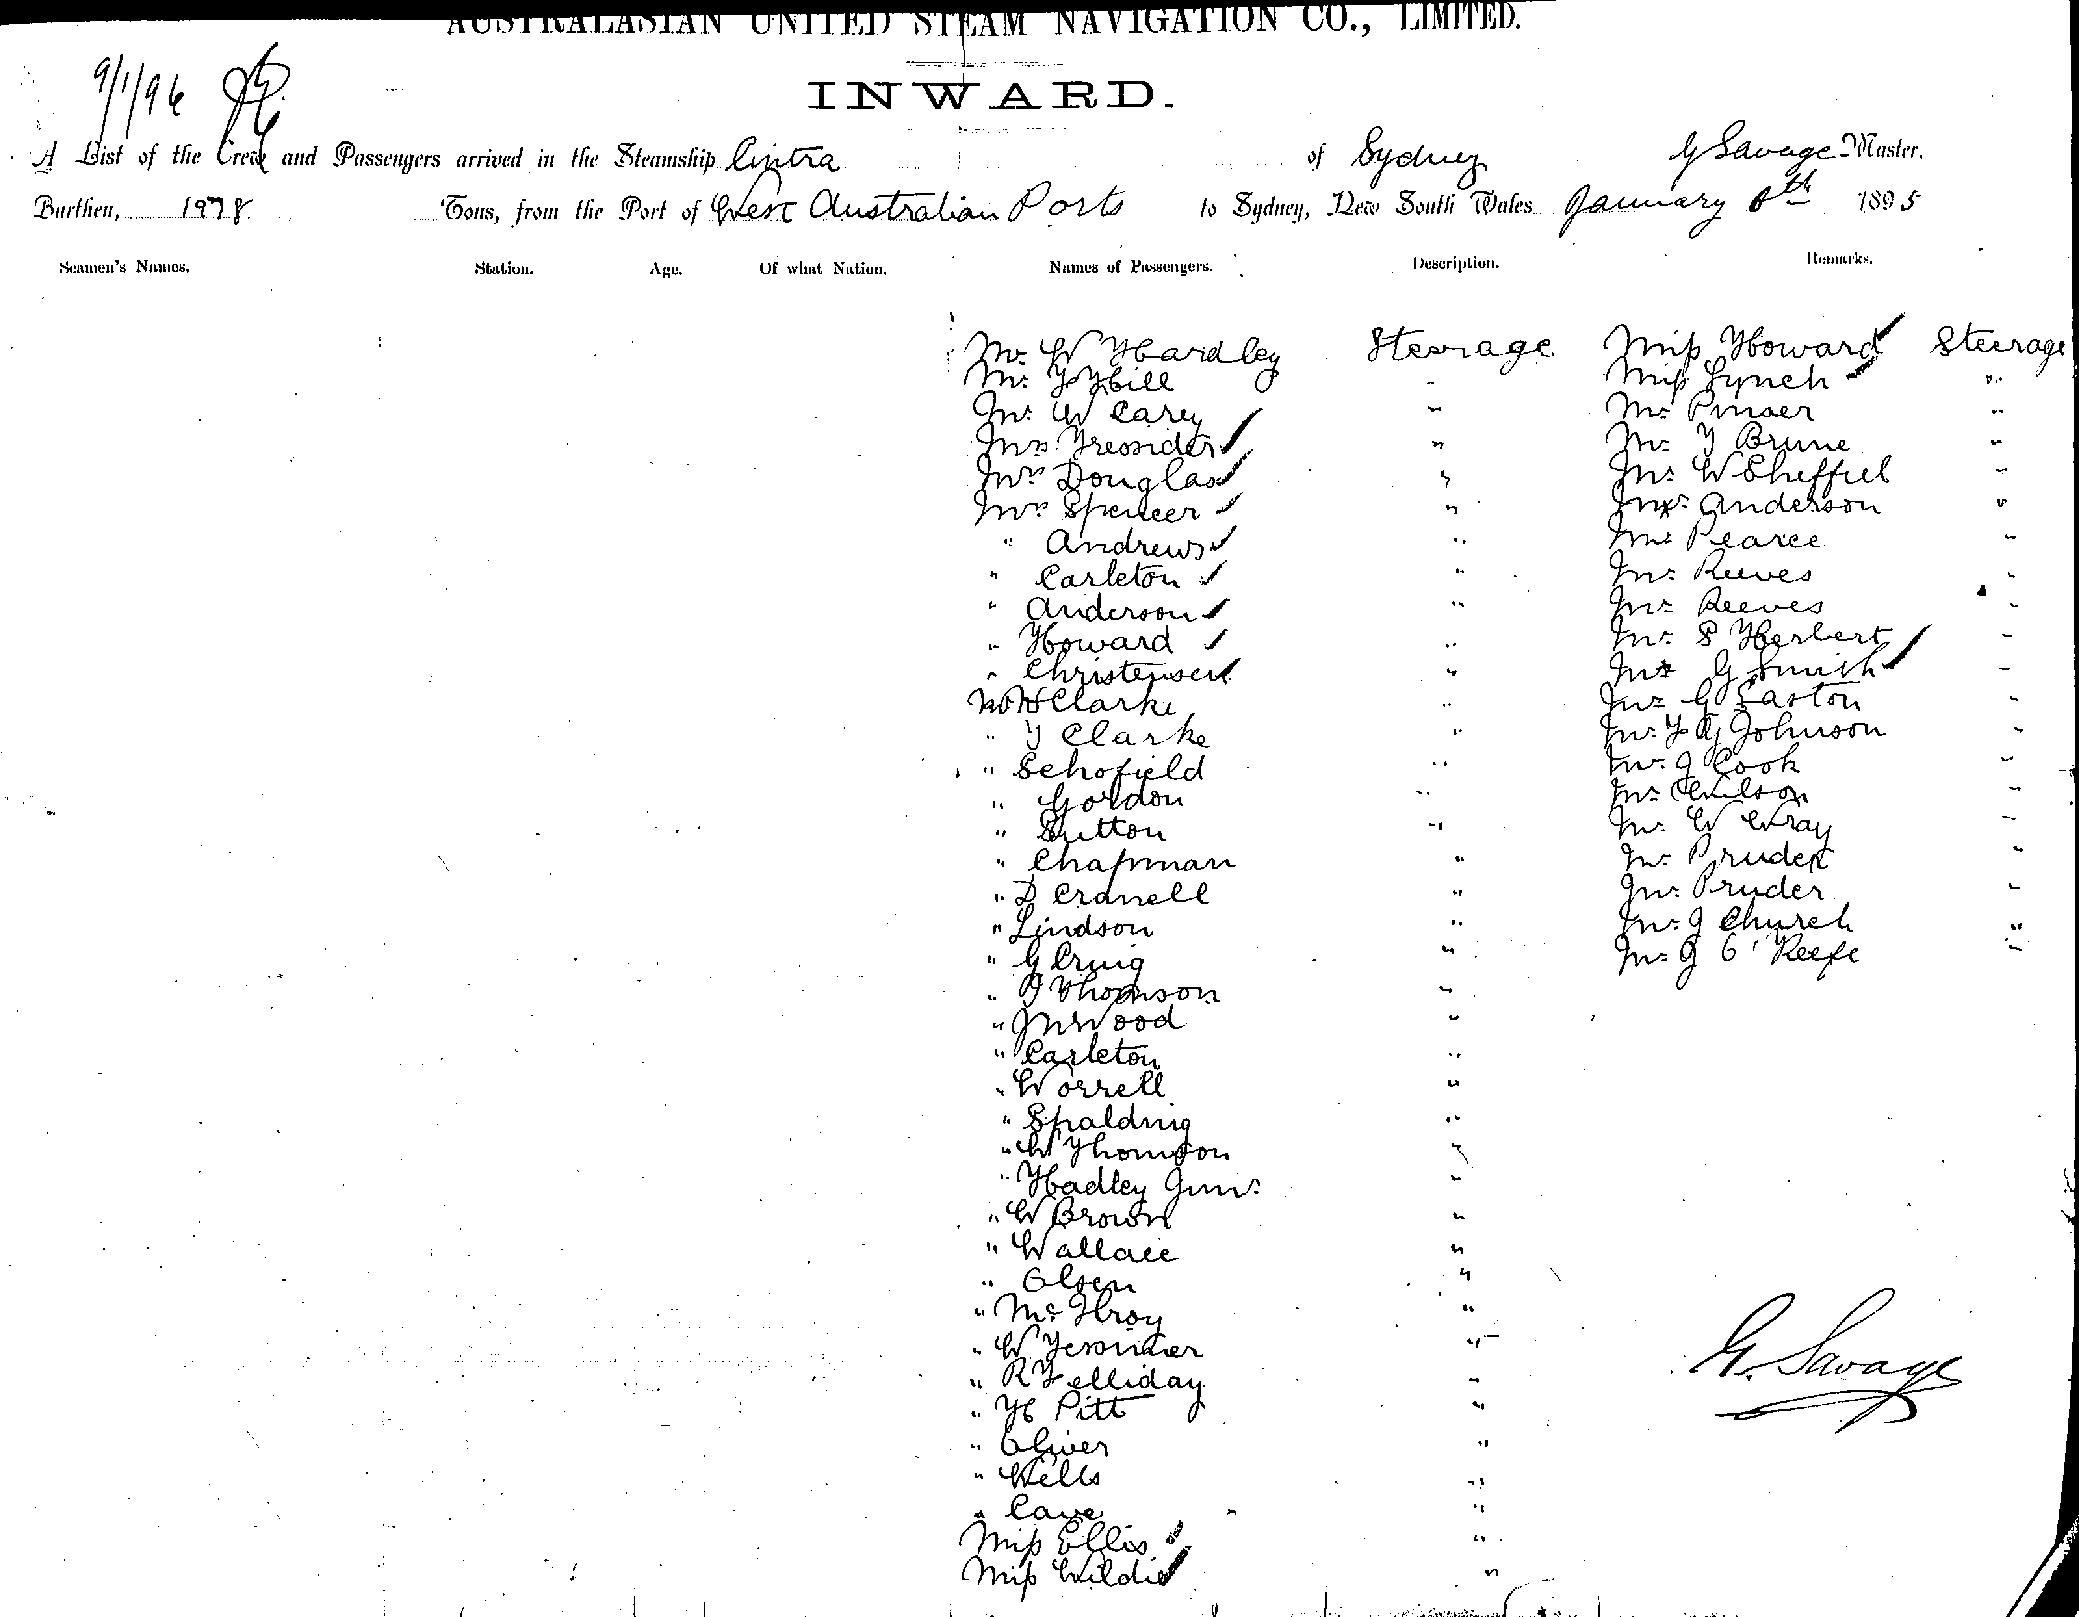 AUSTRALASIAN UNITED STEAM NAVIGATION CO., LIMITED.
INWARD.
9/1/96
A List of the Crew and Passengers arrived in the Steamship Cintra of Sydney G Savage Master.
Burthen, 1978 Tons, from the Port of West Australian Ports to Sydney, New South Wales January 8th 1895
Seamen's Names. Station. Age. Of what Nation. Names of Passengers. Description. Remarks.
Mr W Hardley Steerage Miss Howard Steerage
Mr Hill " Miss Lynch "
Mr W Carey " Mr "
Mrs " Mr Brune "
Mrs Douglas " Mr W Sheffiel "
Mrs Spencer " Mr Anderson "
" Andrews " Mr Pearce "
" Carleton " Mr Reeves "
" Anderson " Mr Reeves "
" Howard " Mr S Herbert "
" Christensen " G Smith "
Mr H Clarke " Mr G Easton "
" Clarke " Mr Johnson "
" Schofield " Mr J Cook "
" Gordon " Mr Wilson "
" Sutton " Mr W Wray "
" Chapman " Mr Pruder "
" D Cranell " Mr Pruder "
" Lindson " Mr J Church "
" G Craig " Mr J O'Keefe "
" Thomson "
" Wood "
" Carleton "
" Worrell "
" Spalding "
" W Thomson "
" Hadley Junr "
" W Brown "
" Wallace "
" Olsen "
" McIlroy "
" W "
" R "
" H Pitt "
" Oliver "
" Wells "
" Cave "
Miss Ellis "
Miss Wildie "
G. Savage